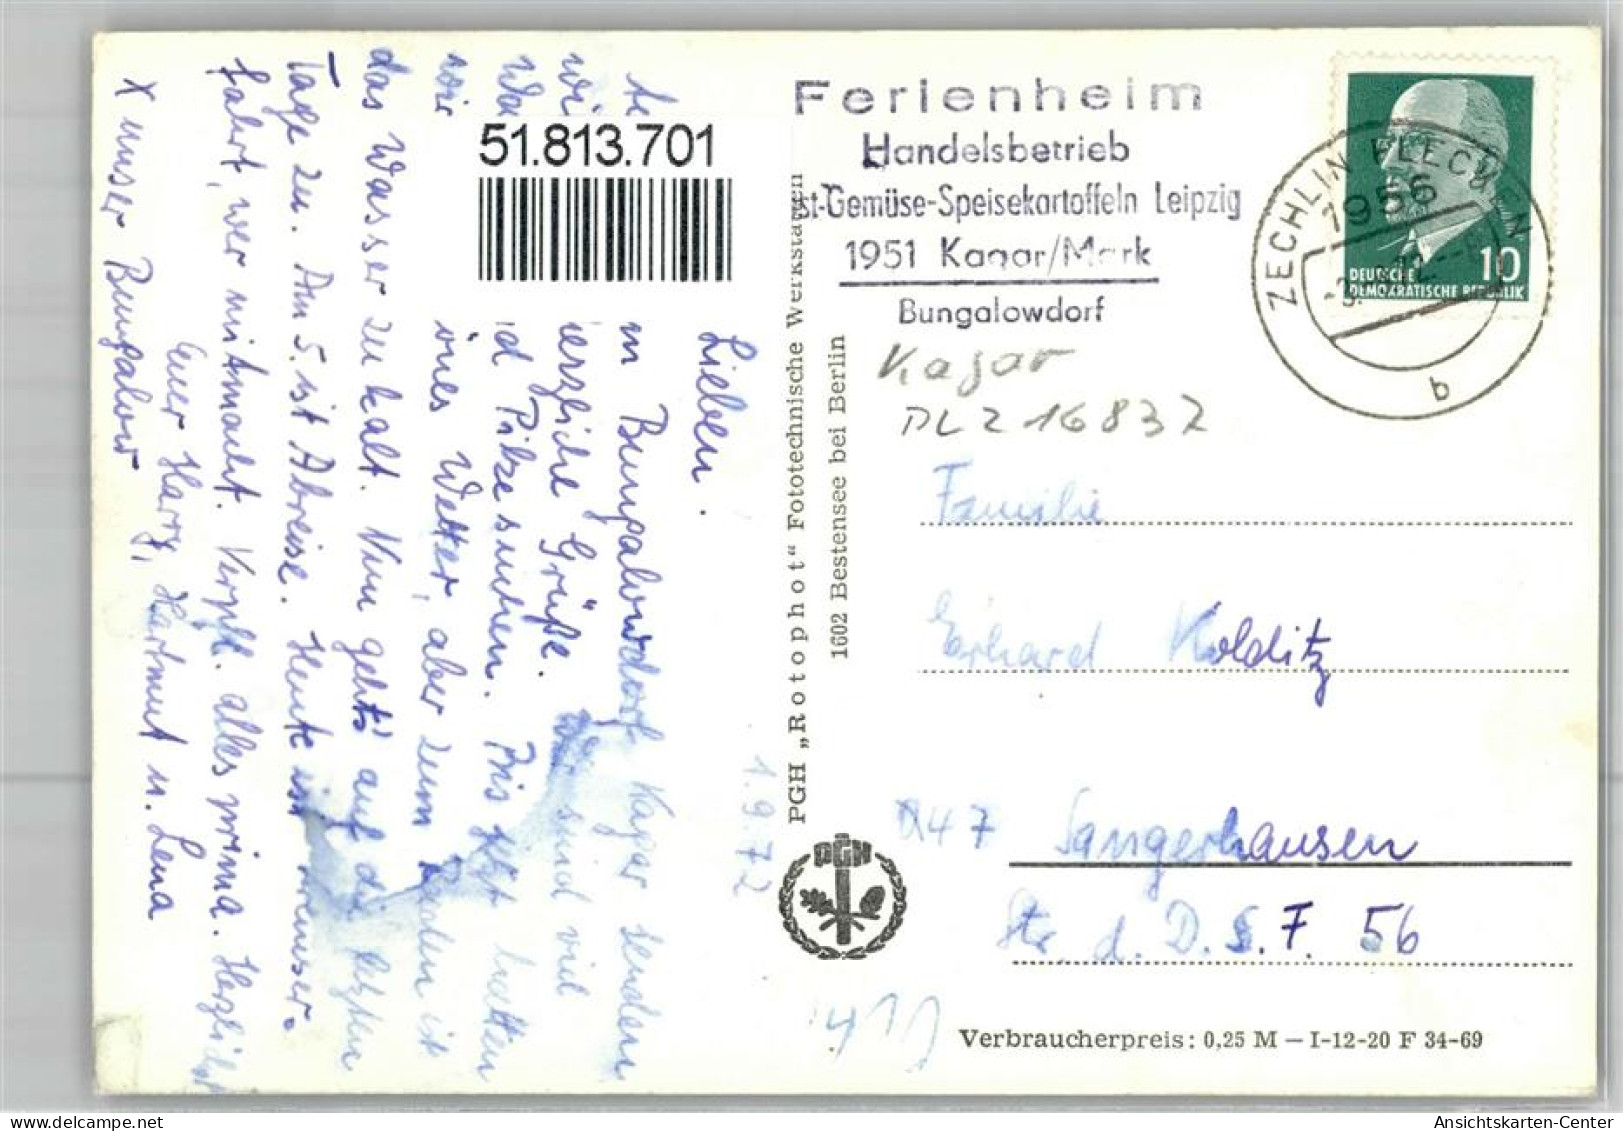 1.9.72
Lieben.
m Bungalowdorf Kagar senden
erzliche Grüße. Wir sind viel
d Pilze suchen. Bis jetzt hatten
ines Wetter, aber zum Baden ist
das Wasser zu kalt. Nun geht's auf die letzten
Tage zu. Am 5. ist Abreise. Heute
fahrt, wer mitmacht. Verpfl. alles prima. Herzlichst
Euer Harry, Hartmut u. Lena
X unser Bungalow
51.813.701
PGH „Rotophot“ Fototechnische Werkstätten
1602 Bestensee bei Berlin
PGH
Ferienheim
Handelsbetrieb
st-Gemüse-Speisekartoffeln Leipzig
1951 Kagar/Mark
Bungalowdorf
Kagar
PLZ 16837
ZECHLIN FLECKEN
1956
b
DEUTSCHE
DEMOKRATISCHE REPUBLIK
10
Familie
Erhard Kolditz
47 Sangerhausen
Str. d. D. S. F. 56
Verbraucherpreis: 0,25 M – I-12-20 F 34-69
Ansichtskarten-Center